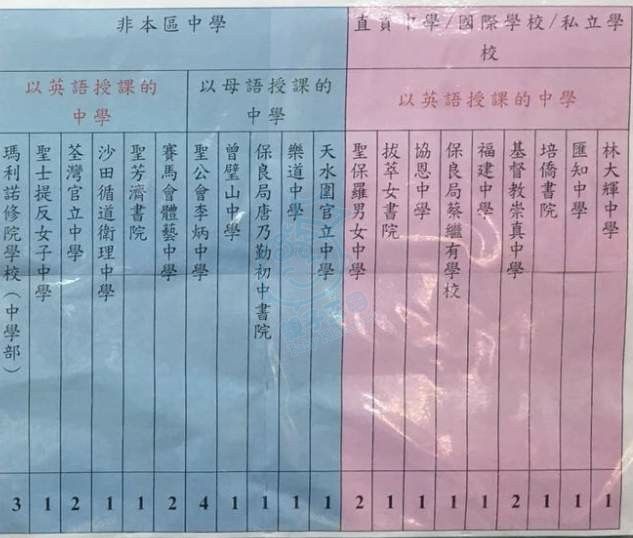 非本區中學
直資中學/國際學校/私立學
校
以英語授課的
中學
以母語授課的
中學
以英語授課的中學
瑪利諾修院學校(中學部)
聖士提反女子中學
荃灣官立中學
沙田循道衛理中學
聖芳濟書院
賽馬會體藝中學
聖公會李炳中學
曾璧山中學
保良局唐乃勤初中書院
樂道中學
天水圍官立中學
聖保羅男女中學
拔萃女書院
協恩中學
保良局蔡繼有學校
福建中學
基督教崇真中學
培僑書院
匯知中學
林大輝中學
3 1 2 1 1 2 4 1 1 1 1 2 1 1 1 1 2 1 1 1